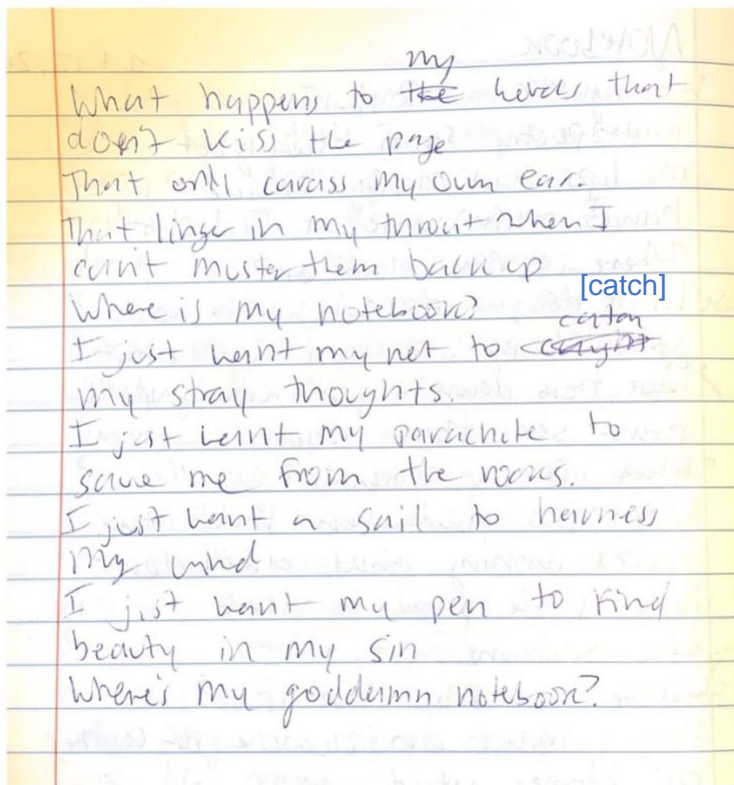 my
What happens to the words that
don't kiss the page
That only carass my own ear.
That linger in my throat when I
can't muster them back up
[catch]
Where is my notebook?
catch
I just want my net to caught
my stray thoughts.
I just want my parachite to
save me from the rocks.
I just want a sail to harness
my wind
I just want my pen to find
beauty in my sin
Where's my goddamn notebook?